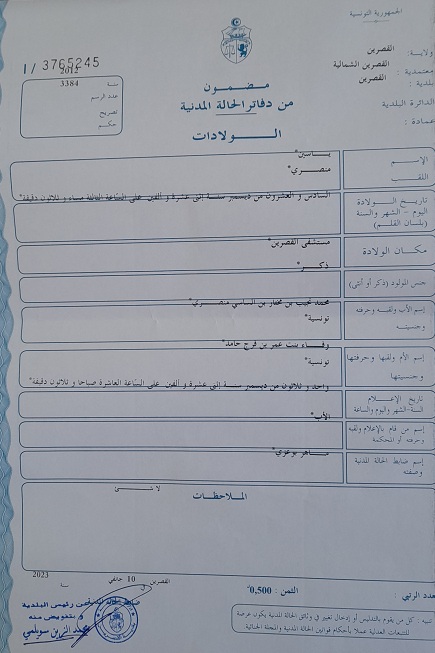 الجمهورية التونسية
ولاية: القصرين
معتمدية: القصرين الشمالية
بلدية: القصرين
الدائرة البلدية
عمادة:
I / 3765245
سنة 2012
عدد الرسم 3384
تصريح
حكم
مضمون
من دفاتر الحالة المدنية
الولادات
الإسم ياسين*
اللقب منصري*
تاريخ الولادة
اليوم - الشهر والسنة
(بلسان القلم)
السادس و العشرون من ديسمبر سنة إثنى عشرة و ألفين على الساعة الثالثة مساء و ثلاثون دقيقة*
مكان الولادة مستشفى القصرين*
جنس المولود (ذكر أو أنثى) ذكر*
إسم الأب ولقبه وحرفته محمد نجيب بن مختار بن الساسي منصري*
وجنسيته تونسية*
إسم الأم ولقبها وحرفتها وفاء بنت عمر بن فرج حامد*
وجنسيتها تونسية*
تاريخ الإعلام
السنة-الشهر واليوم والساعة
واحد و ثلاثون من ديسمبر سنة إثنى عشرة و ألفين على الساعة العاشرة صباحا و ثلاثون دقيقة*
إسم من قام بالإعلام ولقبه الأب*
وحرفته أو المحكمة
إسم ضابط الحالة المدنية ماهر بوعزي*
وصفته
الملاحظات
لا شيء
القصرين في 10 جانفي سنة 2023
العدد الرتبي: الثمن: 0,500*
تنبيه: كل من يقوم بالتدليس أو إدخال تغيير في وثائق الحالة المدنية يكون عرضة
للتتبعات العدلية عملا بأحكام قوانين الحالة المدنية والمجلة الجنائية
عن رئيس البلدية
و بتفويض منه